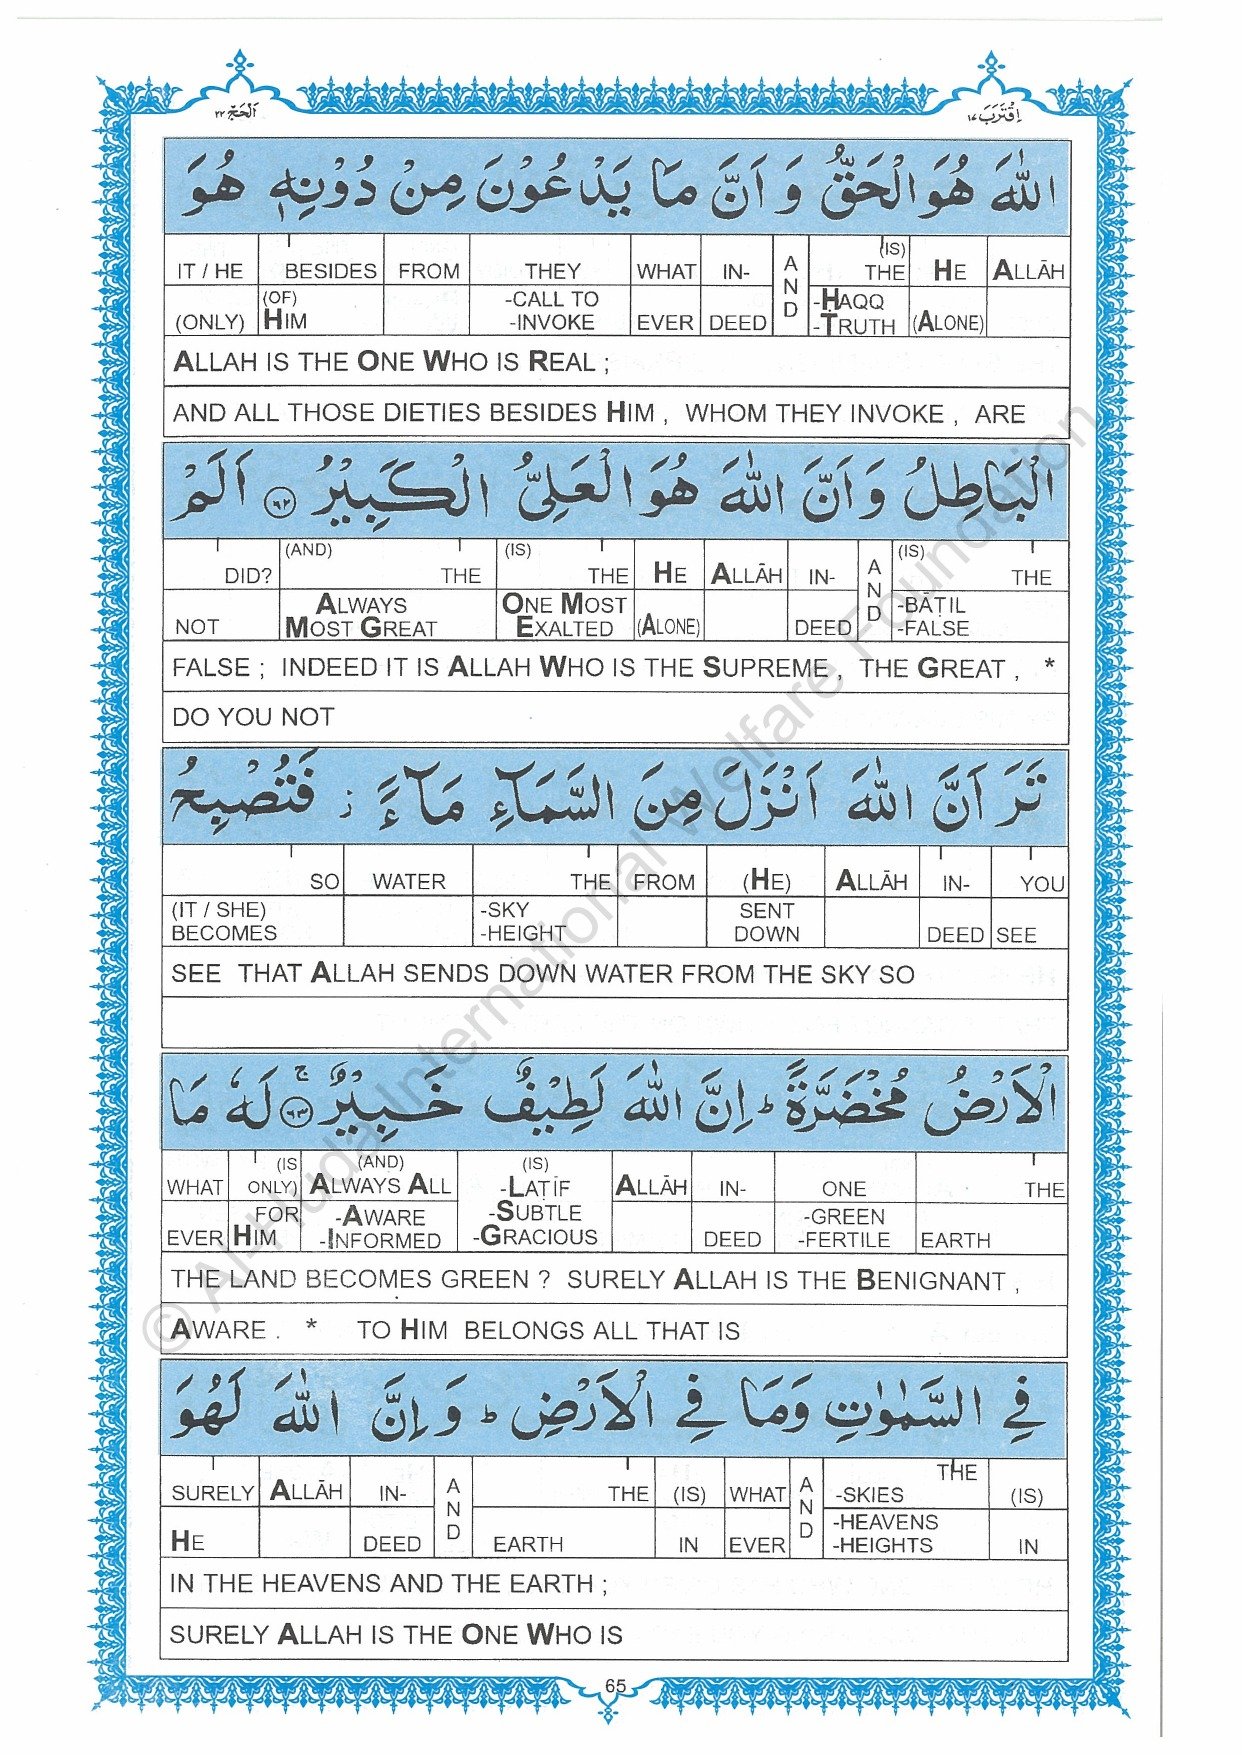 اَلْحَجّ ٢٢
اِقْتَرَبَ ١٧
اللّٰهَ هُوَ الْحَقُّ وَ اَنَّ مَا يَدْعُوْنَ مِنْ دُوْنِهٖ هُوَ
IT / HE BESIDES FROM THEY WHAT IN- AND (IS) THE HE ALLĀH
(ONLY) (OF) HIM -CALL TO -INVOKE EVER DEED -HAQQ -TRUTH (ALONE)
ALLAH IS THE ONE WHO IS REAL ;
AND ALL THOSE DIETIES BESIDES HIM , WHOM THEY INVOKE , ARE
الْبَاطِلُ وَ اَنَّ اللّٰهَ هُوَ الْعَلِيُّ الْكَبِيْرُ ٦٢ اَلَمْ
DID? (AND) THE (IS) THE HE ALLĀH IN- AND (IS) THE
NOT ALWAYS MOST GREAT ONE MOST EXALTED (ALONE) DEED -BĀTIL -FALSE
FALSE ; INDEED IT IS ALLAH WHO IS THE SUPREME , THE GREAT , *
DO YOU NOT
تَرَ اَنَّ اللّٰهَ اَنْزَلَ مِنَ السَّمَآءِ مَآءً ز فَتُصْبِحُ
SO WATER THE FROM (HE) ALLĀH IN- YOU
(IT / SHE) BECOMES -SKY -HEIGHT SENT DOWN DEED SEE
SEE THAT ALLAH SENDS DOWN WATER FROM THE SKY SO
الْاَرْضُ مُخْضَرَّةً ط اِنَّ اللّٰهَ لَطِيْفٌ خَبِيْرٌ ٦٣ ج لَهٗ مَا
WHAT (IS ONLY) (AND) ALWAYS ALL (IS) -LATĪF ALLĀH IN- ONE THE
EVER FOR HIM -AWARE -INFORMED -SUBTLE -GRACIOUS DEED -GREEN -FERTILE EARTH
THE LAND BECOMES GREEN ? SURELY ALLAH IS THE BENIGNANT ,
AWARE . * TO HIM BELONGS ALL THAT IS
فِي السَّمٰوٰتِ وَمَا فِي الْاَرْضِ ط وَ اِنَّ اللّٰهَ لَهُوَ
SURELY ALLĀH IN- AND THE (IS) WHAT AND THE -SKIES (IS)
HE DEED EARTH IN EVER -HEAVENS -HEIGHTS IN
IN THE HEAVENS AND THE EARTH ;
SURELY ALLAH IS THE ONE WHO IS
65
© Al-Huda International Welfare Foundation